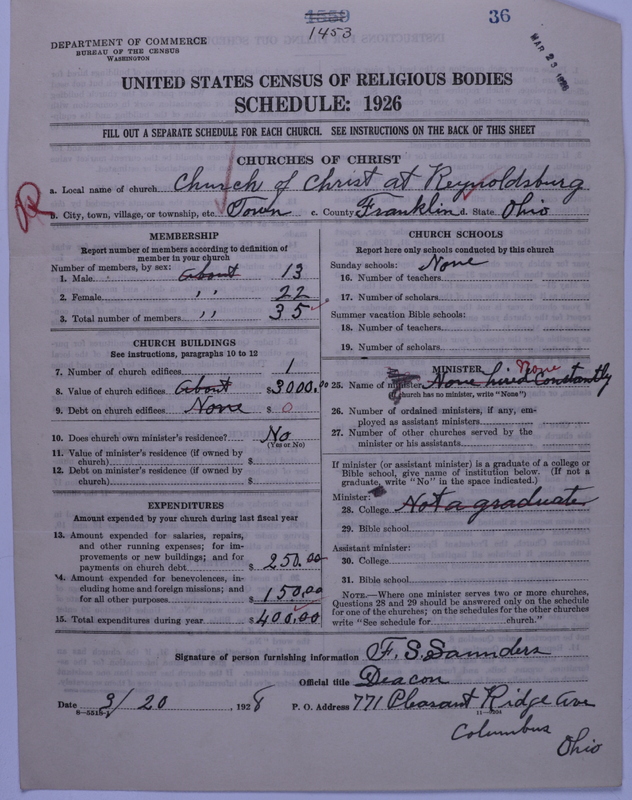 1559
1453
36
MAR 23 1928
DEPARTMENT OF COMMERCE
BUREAU OF THE CENSUS
WASHINGTON
UNITED STATES CENSUS OF RELIGIOUS BODIES
SCHEDULE: 1926
FILL OUT A SEPARATE SCHEDULE FOR EACH CHURCH. SEE INSTRUCTIONS ON THE BACK OF THIS SHEET
CHURCHES OF CHRIST
a. Local name of church Church of Christ at Reynoldsburg
R
b. City, town, village, or township, etc. Town c. County Franklin d. State Ohio
MEMBERSHIP
Report number of members according to definition of
member in your church
Number of members, by sex:
1. Male About 13
2. Female " 22
3. Total number of members " 35
CHURCH BUILDINGS
See instructions, paragraphs 10 to 12
7. Number of church edifices 1
8. Value of church edifices About $3000.00
9. Debt on church edifices None $ 0
10. Does church own minister's residence? No
(Yes or No)
11. Value of minister's residence (if owned by
church) $
12. Debt on minister's residence (if owned by
church) $
EXPENDITURES
Amount expended by your church during last fiscal year
13. Amount expended for salaries, repairs,
and other running expenses; for im-
provements or new buildings; and for
payments on church debt $ 250.00
14. Amount expended for benevolences, in-
cluding home and foreign missions; and
for all other purposes $ 150.00
15. Total expenditures during year $ 400.00
CHURCH SCHOOLS
Report here only schools conducted by this church
Sunday schools: None
16. Number of teachers
17. Number of scholars
Summer vacation Bible schools:
18. Number of teachers
19. Number of scholars
MINISTER None
25. Name of minister None hired Constantly
(If church has no minister, write "None")
26. Number of ordained ministers, if any, em-
ployed as assistant ministers
27. Number of other churches served by the
minister or his assistants
If minister (or assistant minister) is a graduate of a college or
Bible school, give name of institution below. (If not a
graduate, write "No" in the space indicated.)
Minister:
28. College Not a graduate
29. Bible school
Assistant minister:
30. College
31. Bible school
NOTE.—Where one minister serves two or more churches,
Questions 28 and 29 should be answered only on the schedule
for one of the churches; on the schedules for the other churches
write "See schedule for church."
Signature of person furnishing information F. S. Saunders
Official title Deacon
Date 3/20, 1928 P. O. Address 771 Pleasant Ridge Ave
Columbus
Ohio